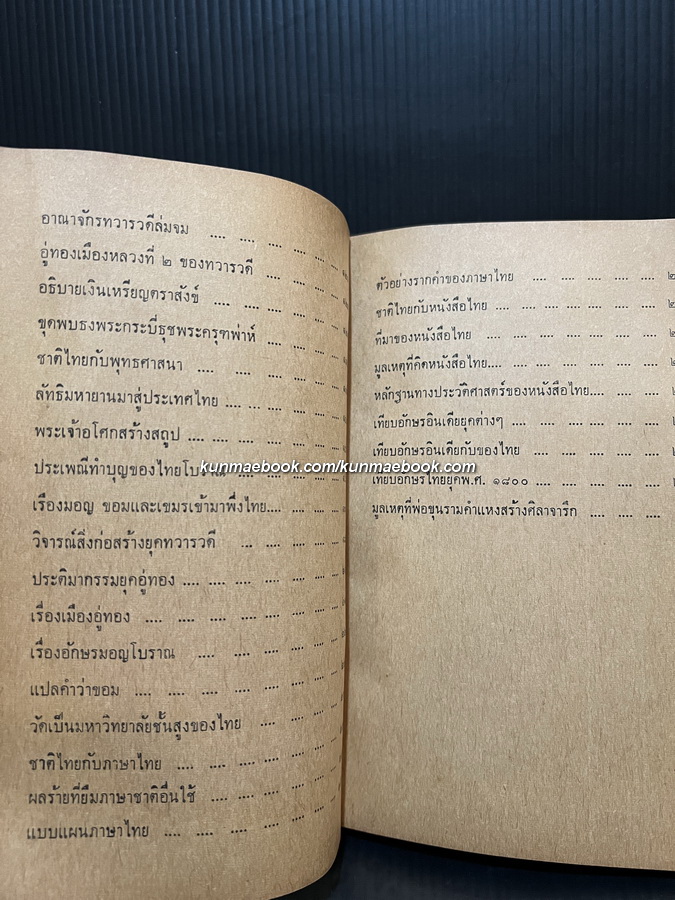 อาณาจักรทวารวดีล่มจม .... .... .... .... ....
อู่ทองเมืองหลวงที่ ๒ ของทวารวดี .... .... .... ....
อธิบายเงินเหรียญตราสังข์ .... .... .... .... ....
ขุดพบธงพระกระบี่ธุชพระครุฑพ่าห์ .... .... .... ....
ชาติไทยกับพุทธศาสนา .... .... .... .... ....
ลัทธิมหายานมาสู่ประเทศไทย .... .... .... .... ....
พระเจ้าอโศกสร้างสถูป .... .... .... .... .... ....
ประเพณีทำบุญของไทยโบราณ .... .... .... ....
เรื่องมอญ ขอมและเขมรเข้ามาพึ่งไทย.... .... .... ....
วิจารณ์สิ่งก่อสร้างยุคทวารวดี ... .... .... .... ....
ประติมากรรมยุคอู่ทอง .... .... .... .... .... ....
เรื่องเมืองอู่ทอง .... .... .... .... .... ....
เรื่องอักษรมอญโบราณ .... .... .... .... .... ....
แปลคำว่าขอม .... .... .... .... .... .... ....
วัดเป็นมหาวิทยาลัยชั้นสูงของไทย .... .... .... ....
ชาติไทยกับภาษาไทย .... .... .... .... .... ....
ผลร้ายที่ยืมภาษาชาติอื่นใช้ .... .... .... .... ....
แบบแผนภาษาไทย .... .... .... .... .... ....
ตัวอย่างรากคำของภาษาไทย .... .... .... .... .... ๒
ชาติไทยกับหนังสือไทย .... .... .... .... .... .... ๒
ที่มาของหนังสือไทย .... .... .... .... .... .... ๒
มูลเหตุที่คิดหนังสือไทย.... .... .... .... .... .... ๒
หลักฐานทางประวัติศาสตร์ของหนังสือไทย.... .... .... ๒
เทียบอักษรอินเดียยุคต่างๆ .... .... .... .... ....
เทียบอักษรอินเดียกับของไทย .... .... .... .... ....
เทียบอักษรไทยยุคพ.ศ. ๑๘๐๐ .... .... .... .... ....
มูลเหตุที่พ่อขุนรามคำแหงสร้างศิลาจารึก .... .... ....
kunmaebook.com/kunmaebook.com